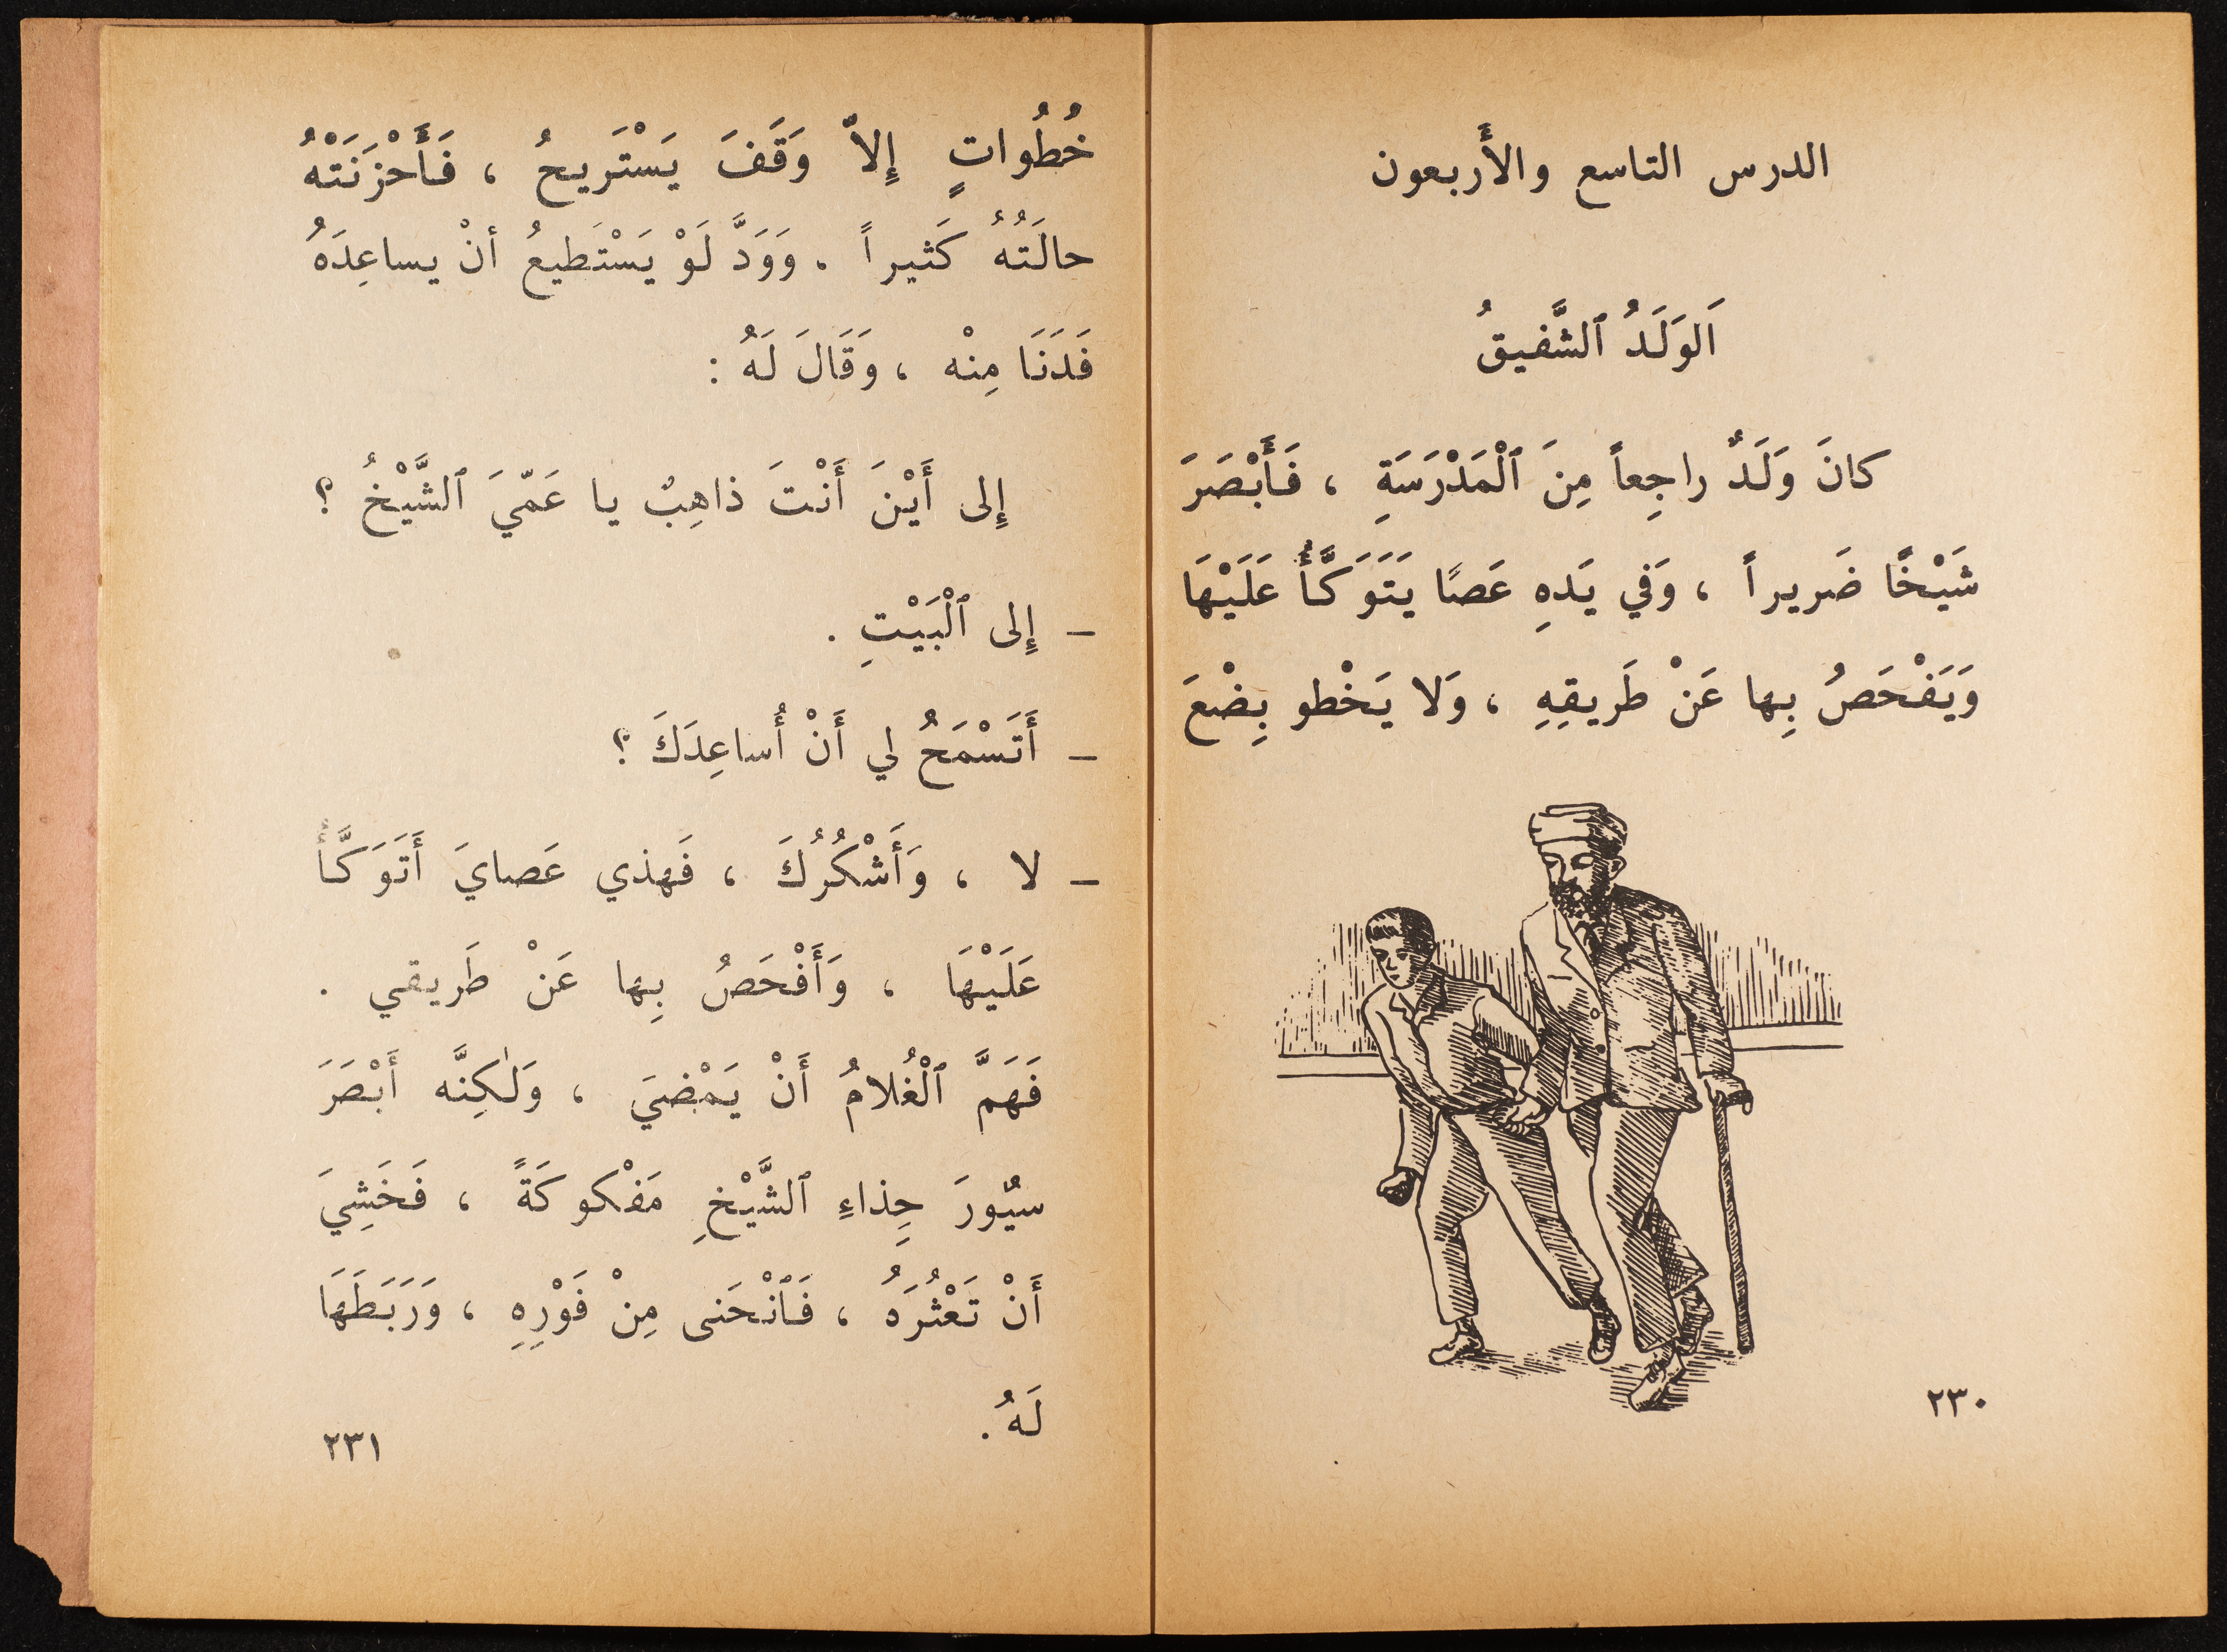 الدرس التاسع والأَربعون
اَلوَلَدُ ٱلشَّفيقُ
كانَ وَلَدٌ راجِعاً مِنَ ٱلْمَدْرَسَةِ ، فَأَبْصَرَ
شَيْخًا ضَريراً ، وَفي يَدهِ عَصًا يَتَوَكَّأُ عَلَيْهَا
وَيَفْحَصُ بِها عَنْ طَريقِهِ ، وَلا يَخْطو بِضْعَ
٢٣٠
خُطُواتٍ إِلاّ وَقَفَ يَسْتَريحُ ، فَأَحْزَنَتْهُ
حالَتُهُ كَثيراً . وَوَدَّ لَوْ يَسْتَطيعُ أنْ يساعِدَهُ
فَدَنَا مِنْه ، وَقَالَ لَهُ :
إِلى أَيْنَ أَنْتَ ذاهِبٌ يا عَمّيَ ٱلشَّيْخُ ؟
– إِلى ٱلْبَيْتِ .
– أَتَسْمَحُ لي أَنْ أُساعِدَكَ ؟
– لا ، وَأَشْكُرُكَ ، فَهذي عَصايَ أَتَوَكَّأُ
عَلَيْهَا ، وَأَفْحَصُ بِها عَنْ طَريقي .
فَهَمَّ ٱلْغُلامُ أَنْ يَمْضيَ ، وَلٰكِنَّه أَبْصَرَ
سيُورَ حِذاءِ ٱلشَّيْخِ مَفْكوكَةً ، فَخَشِيَ
أَنْ تَعْثُرَهُ ، فَٱنْحَنى مِنْ فَوْرِهِ ، وَرَبَطَهَا
لَهُ .
٢٣١